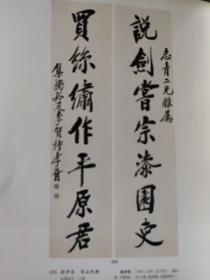 志青二兄雅属
說劍嘗宗漆園吏
買絲繡作平原君
集獨孤及李賀詩孝胥